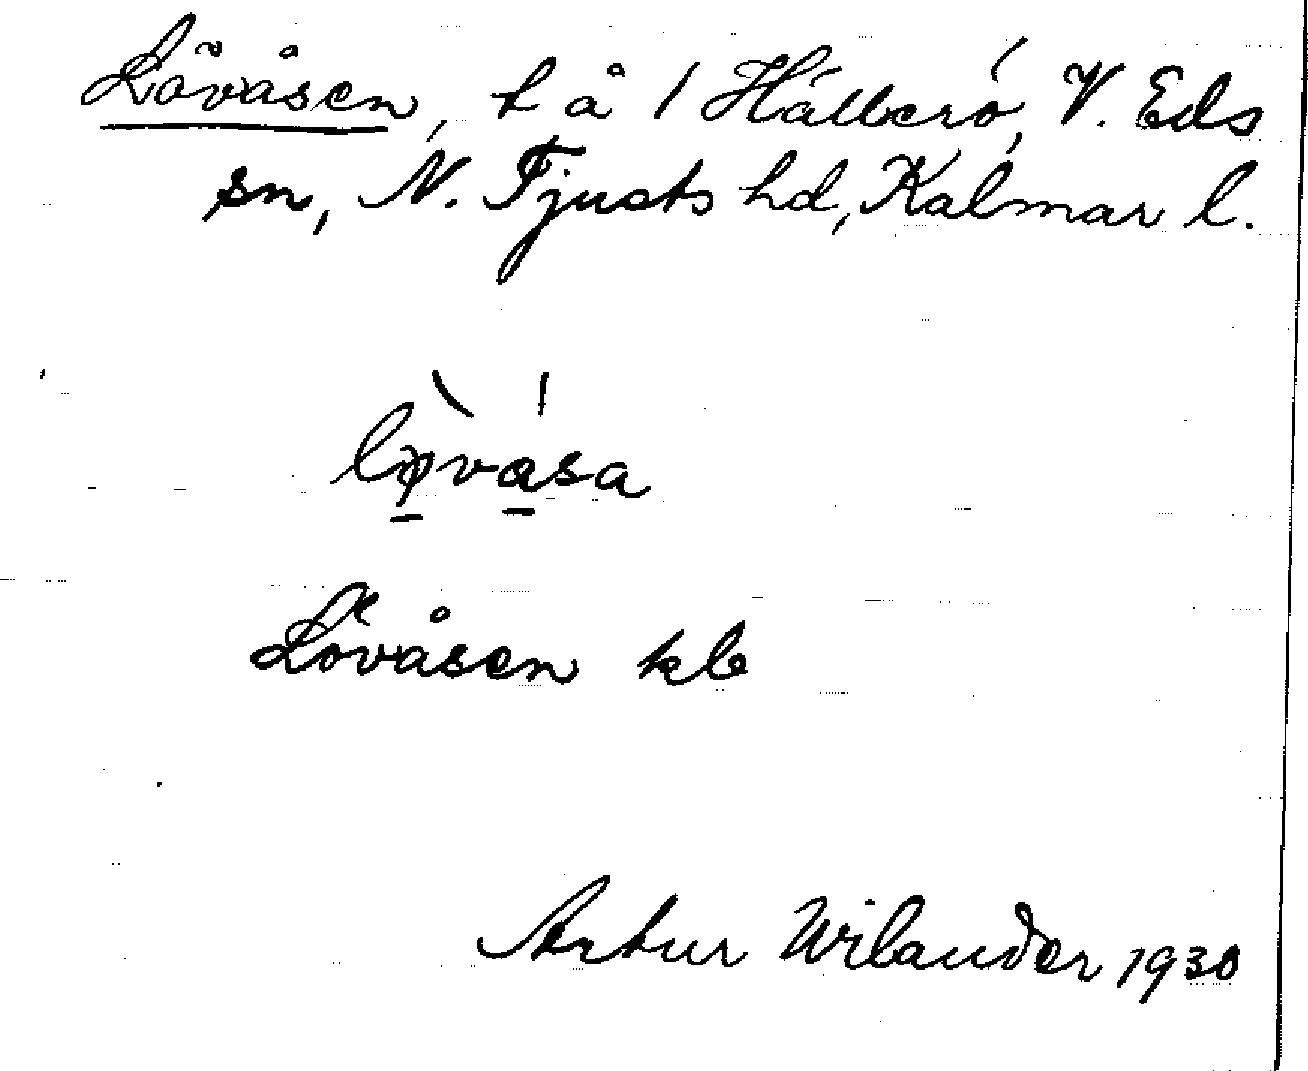 Lövåsen, t å 1 Hällerö, V. Eds
sn, N. Tjusts hd, Kalmar l.
lø̱̀vá̱sa
Lövåsen kb
Artur Wilander 1930